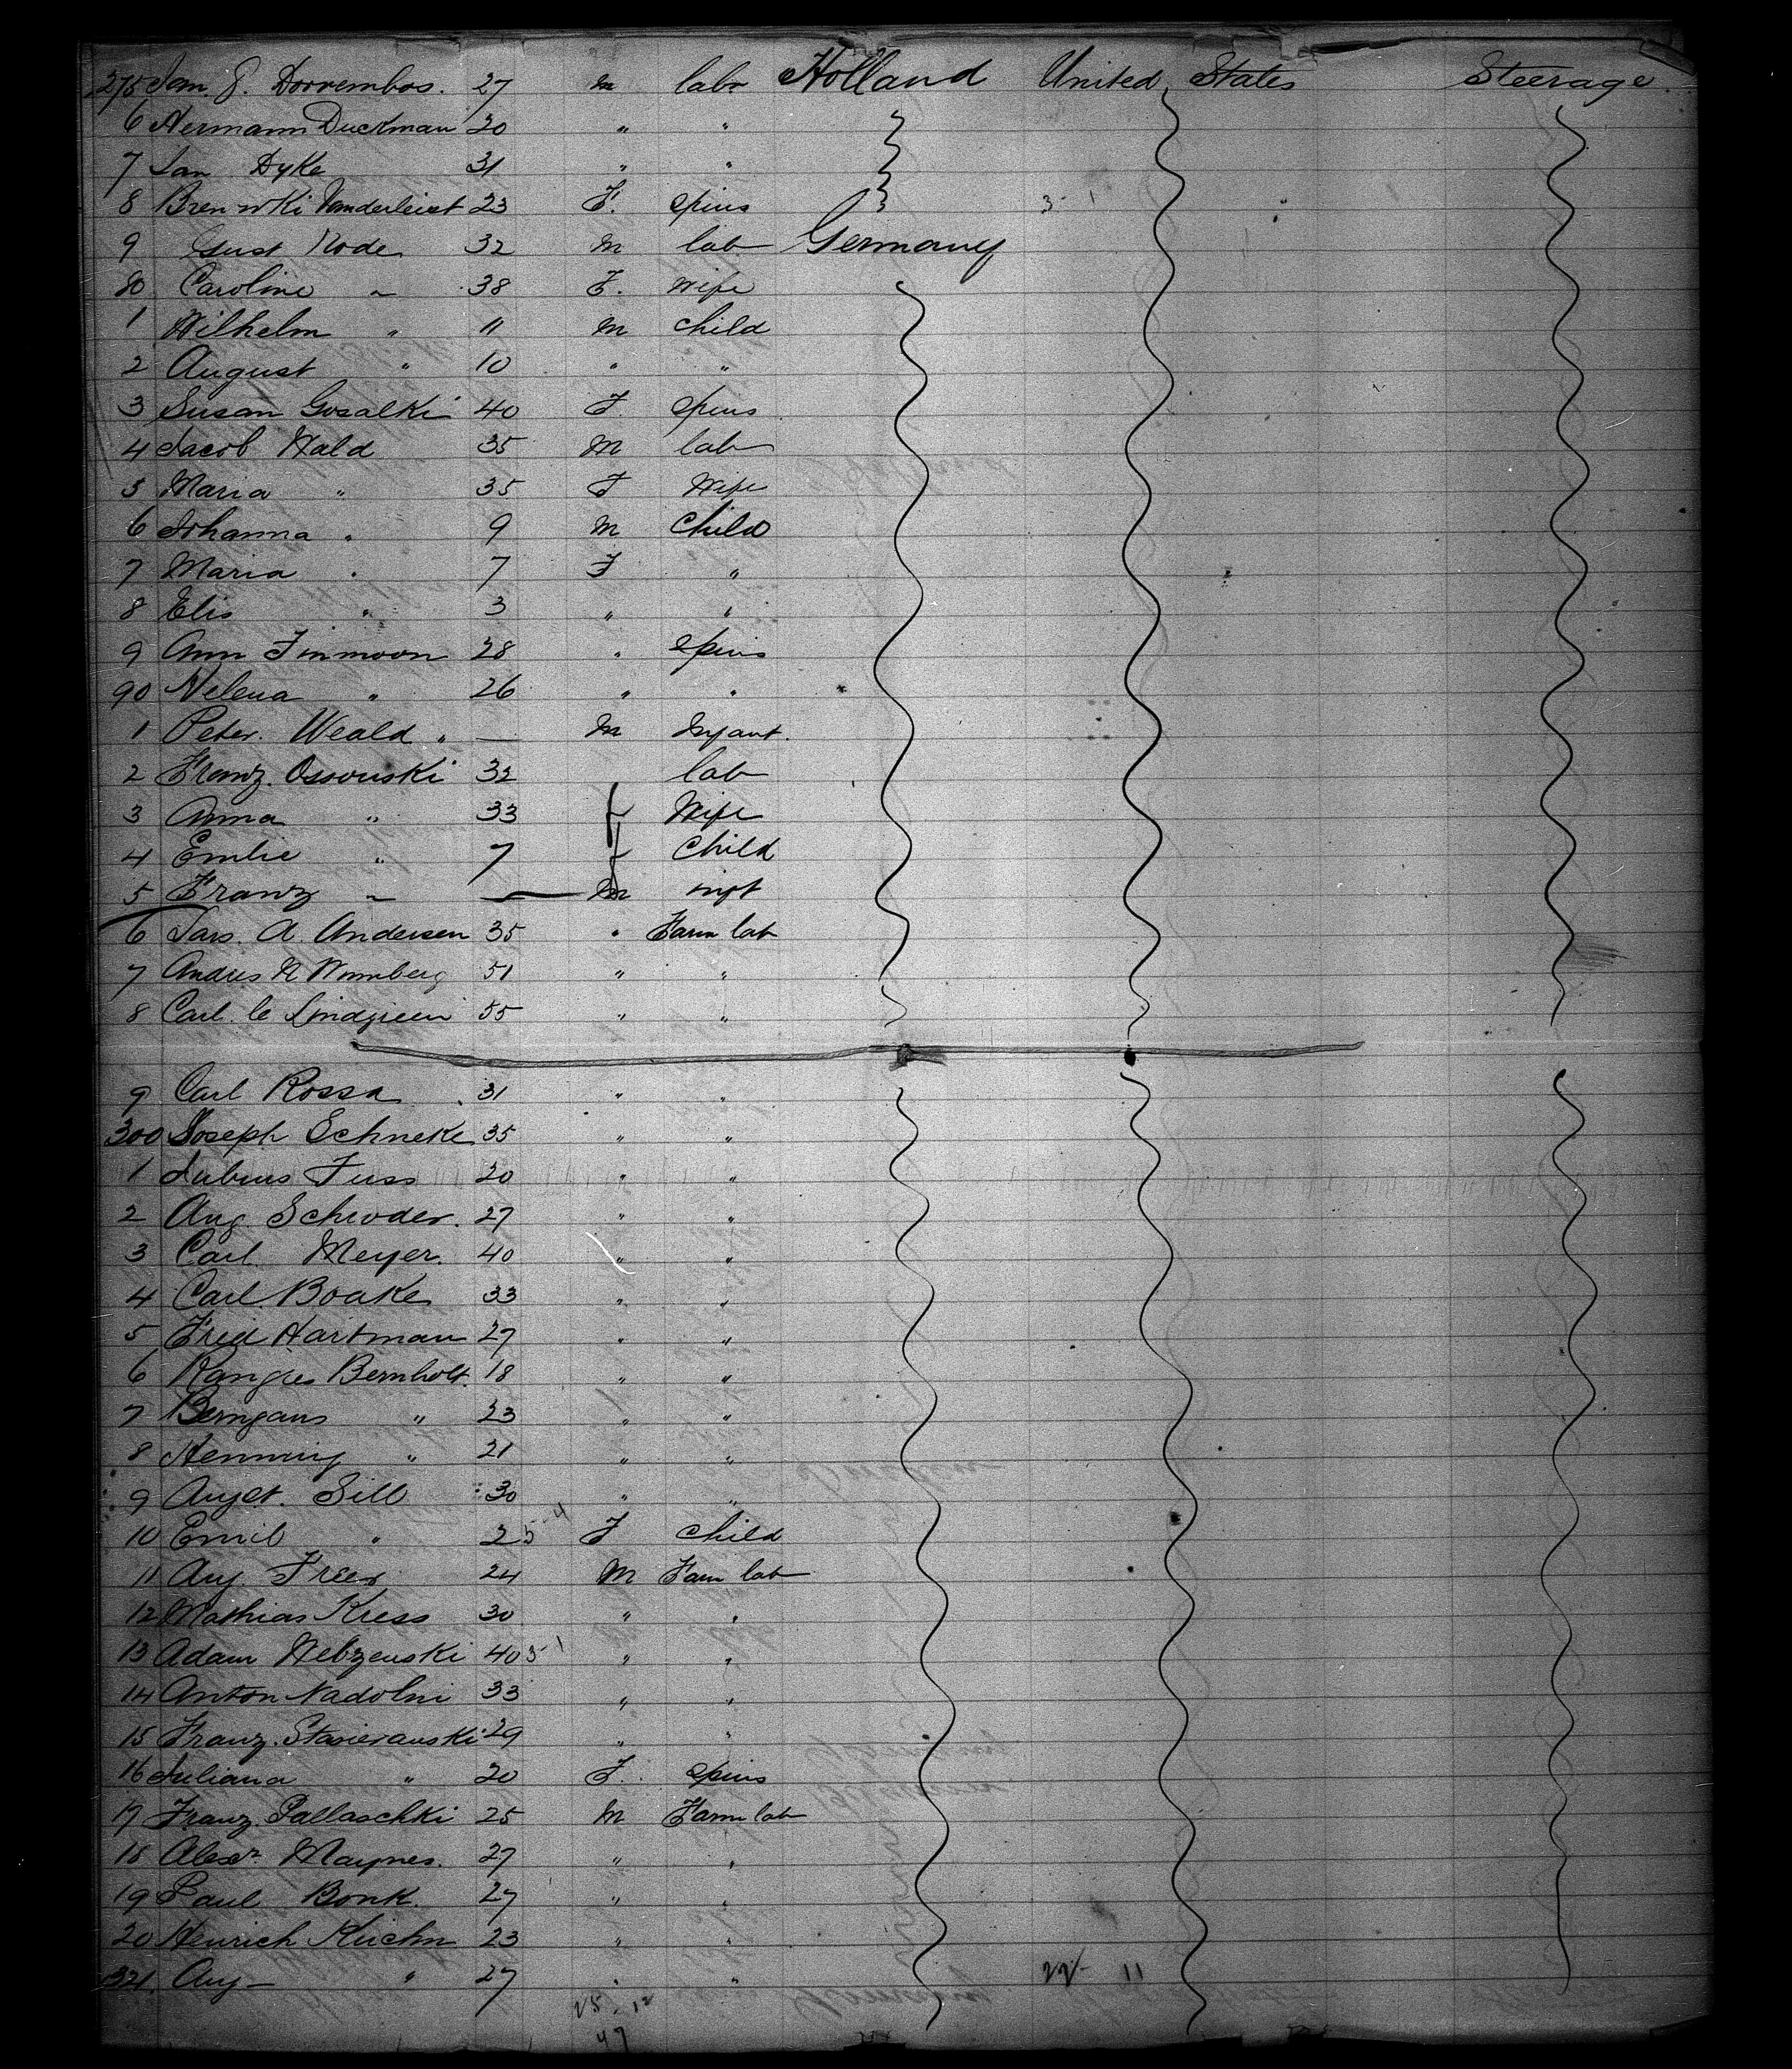 275 Jan. J. Dorrembos. 27 m labr Holland United States Steerage
6 Hermann Duckman 30 " "
7 Jan Dyke 31 " "
8 Vanderleist 23 F. spins 3 - 1
9 Gust Rode 32 m lab Germany
80 Caroline " 38 F. Wife
1 Wilhelm " 11 m child
2 August " 10 " "
3 Susan Gosalki 40 F. spins
4 Jacob Wald 35 M lab
5 Maria " 35 F Wife
6 Johanna " 9 m Child
7 Maria " 7 F "
8 Elis " 3 " "
9 Ann Finmoon 28 " spins
90 Helena " 26 " "
1 Peter. Weald " — m Infant.
2 Franz. Ossouski 32 lab
3 Anna " 33 f Wife
4 Emlie " 7 f Child
5 Franz " — m inft
6 Lars. A. Andersen 35 " Farm lab
7 Andres N 51 " "
8 Carl. Lindgreen 55 " "
9 Carl Rossa 31 " "
300 Joseph Schneke 35 " "
1 Fuss 20 " "
2 Aug Schroder. 27 " "
3 Carl Meyer. 40 " "
4 Carl. Boake 33 " "
5 Fried Hartman 27 " "
6 Bernholt. 18 " "
7 " 23 " "
8 Henning " 21 " "
9 Augst. Sill 30 " "
10 Emil " 2 5-4 F child
11 Aug. Freer 24 M Farm lab
12 Mathias Kress 30 " "
13 Adam 40 5 1 " "
14 Anton Nadolni 33 " "
15 Franz. Stasierauski 29 " "
16 Juliana " 20 F. spins
17 Franz Pallaschki 25 m Farm lab
18 Alexr. Maynes. 27 " "
19 Paul Bonk. 27 " "
20 Heinrich Kuchn 23 " "
321. Aug — " 27 " " 22 - 11
25. 12
47